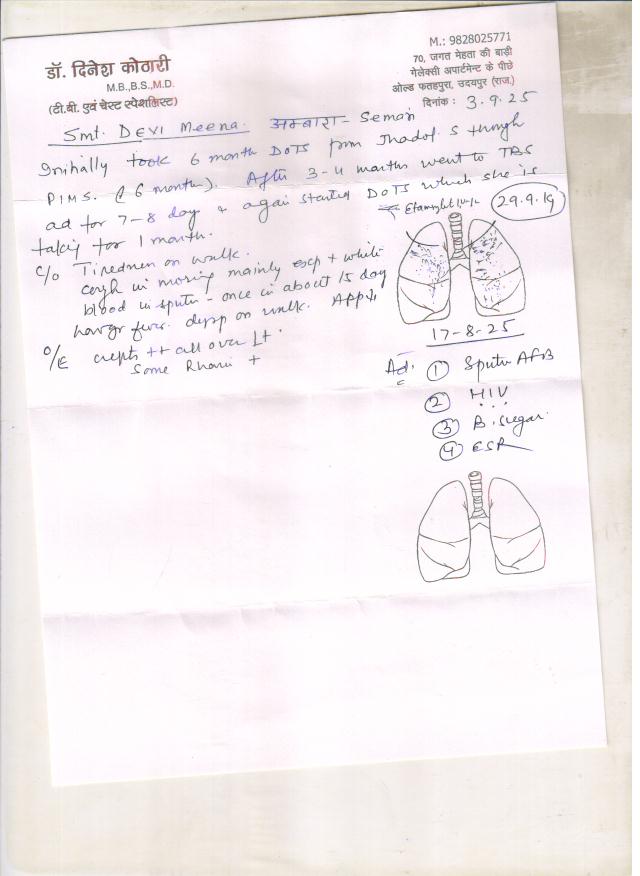 डॉ. दिनेश कोठारी
M.B.,B.S.,M.D.
(टी.बी. एवं चेस्ट स्पेशलिस्ट)
M.: 9828025771
70, जगत मेहता की बाड़ी
गेलेक्सी अपार्टमेन्ट के पीछे
ओल्ड फतहपुरा, उदयपुर (राज.)
दिनांक : 3.9.25
Smt. DEVI Meena. अम्बारा - Semari
Initially took 6 month DOTS from Jhadol. S through
PIMS. (6 month). After 3-4 months went to TBS
ad for 7-8 day & again started DOTS which she is
taking for 1 month.
29.9.19
C/o Tiredness on walk.
cough in morning mainly + white
blood in sputum - once in about 15 day
fever. on walk. App
17-8-25
O/E crepts ++ all over
Some Rhonchi +
Ad. ① Sputum AFB
② HIV
③ B. Sugar
④ ESR